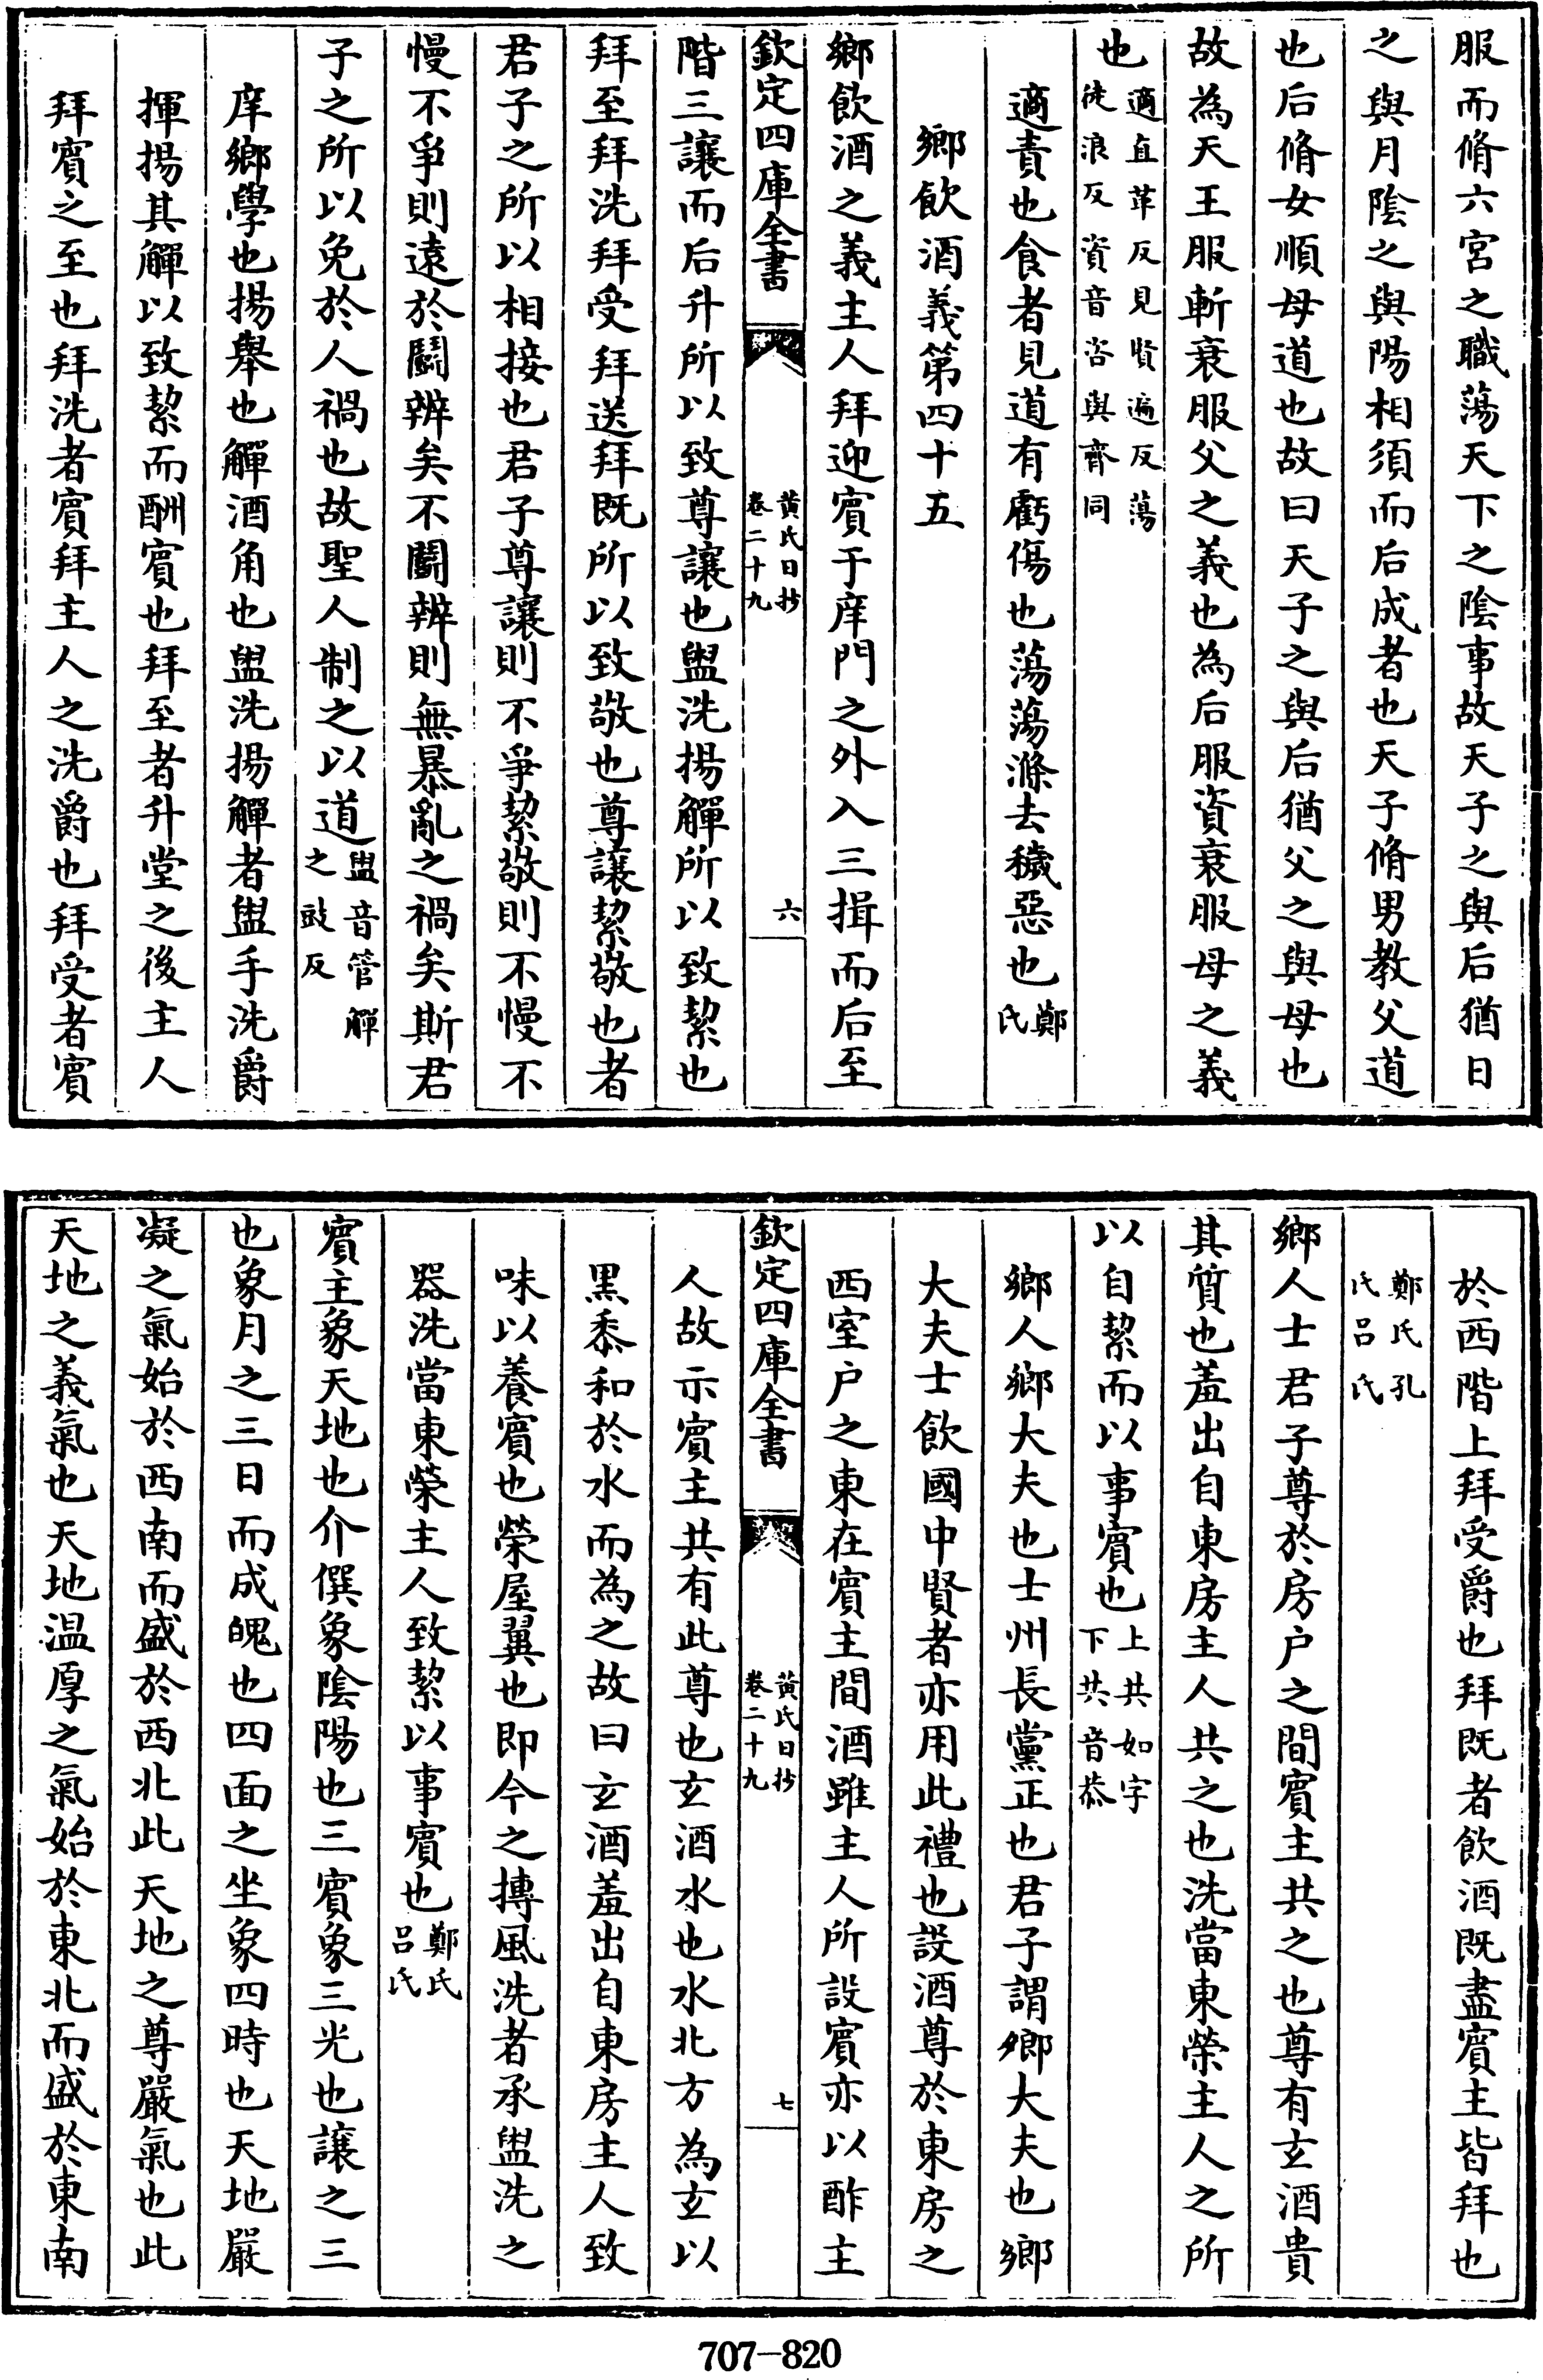 服而脩六宮之職蕩天下之陰事故天子之與后猶日
之與月陰之與陽相須而后成者也天子脩男教父道
也后脩女順母道也故曰天子之與后猶父之與母也
故為天王服斬衰服父之義也為后服資衰服母之義
也適直革反見賢遍反蕩徒浪反資音咨與齊同
適責也食者見道有虧傷也蕩蕩滌去穢惡也鄭氏
鄉飲酒義第四十五
鄉飲酒之義主人拜迎賓于庠門之外入三揖而后至
欽定四庫全書 黃氏日抄卷二十九 六
階三讓而后升所以致尊讓也盥洗揚觶所以致絜也
拜至拜洗拜受拜送拜既所以致敬也尊讓絜敬也者
君子之所以相接也君子尊讓則不爭絜敬則不慢不
慢不爭則遠於鬭辨矣不鬭辨則無暴亂之禍矣斯君
子之所以免於人禍也故聖人制之以道盥音管觶之豉反
庠鄉學也揚舉也觶酒角也盥洗揚觶者盥手洗爵
揮揚其觶以致絜而酬賓也拜至者升堂之後主人
拜賓之至也拜洗者賓拜主人之洗爵也拜受者賓
於西階上拜受爵也拜既者飲酒既盡賓主皆拜也
鄭氏孔氏呂氏
鄉人士君子尊於房户之間賓主共之也尊有玄酒貴
其質也羞出自東房主人共之也洗當東榮主人之所
以自絜而以事賓也上共如字下共音恭
鄉人鄉大夫也士州長黨正也君子謂鄉大夫也鄉
大夫士飲國中賢者亦用此禮也設酒尊於東房之
西室户之東在賓主間酒雖主人所設賓亦以酢主
欽定四庫全書 黃氏日抄卷二十九 七
人故示賓主共有此尊也玄酒水也水北方為玄以
黑黍和於水而為之故曰玄酒羞出自東房主人致
味以養賓也榮屋翼也即今之摶風洗者承盥洗之
器洗當東榮主人致絜以事賓也鄭氏呂氏
賓主象天地也介僎象陰陽也三賓象三光也讓之三
也象月之三日而成魄也四面之坐象四時也天地嚴
凝之氣始於西南而盛於西北此天地之尊嚴氣也此
天地之義氣也天地温厚之氣始於東北而盛於東南
707-820